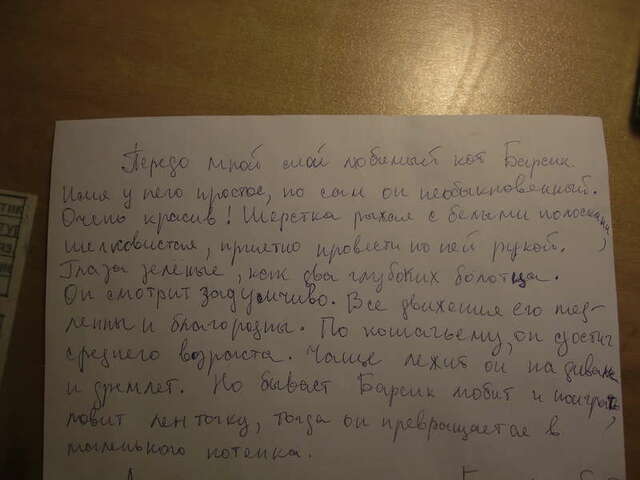 Передо мной мой любимый кот Барсик
Имя у него простое, но сам он необыкновенный.
Очень красив! Шерстка рыжая с белыми полосками,
шелковистая, приятно провести по ней рукой.
Глаза зелёные, как два глубоких болотца.
Он смотрит задумчиво. Все движения его мед-
ленны и благородны. По кошачьему, он достиг
среднего возраста. Чаще лежит он на диване
и дремлет. Но бывает Барсик любит и поиграть,
ловит ленточку, тогда он превращается в
маленького котенка.